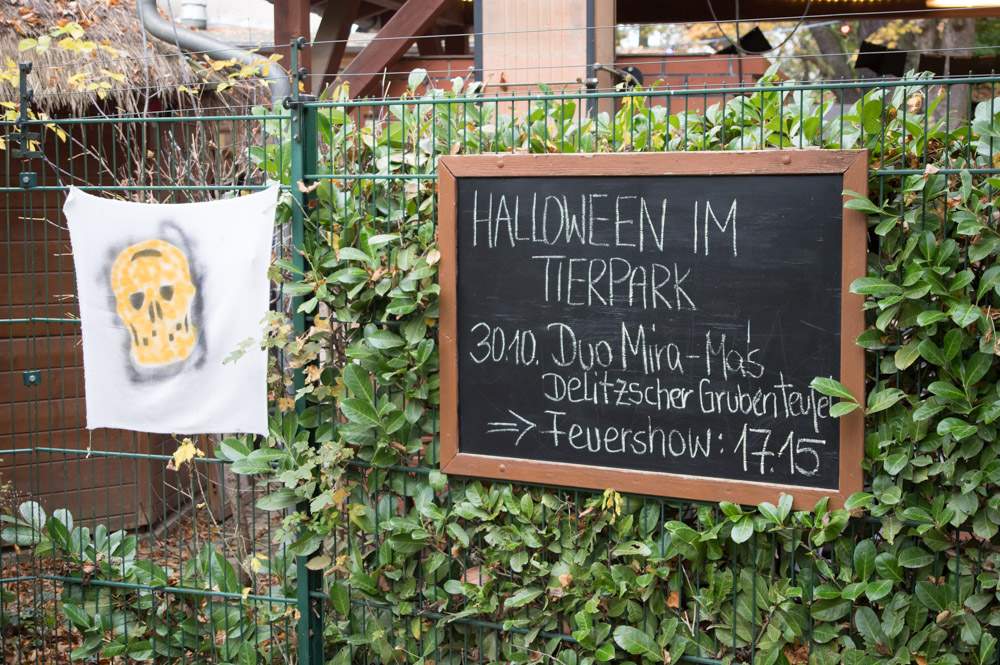 HALLOWEEN IM
TIERPARK
30.10. Duo Mira-Ma's
Delitzscher Grubenteufel
→ Feuershow: 17.15